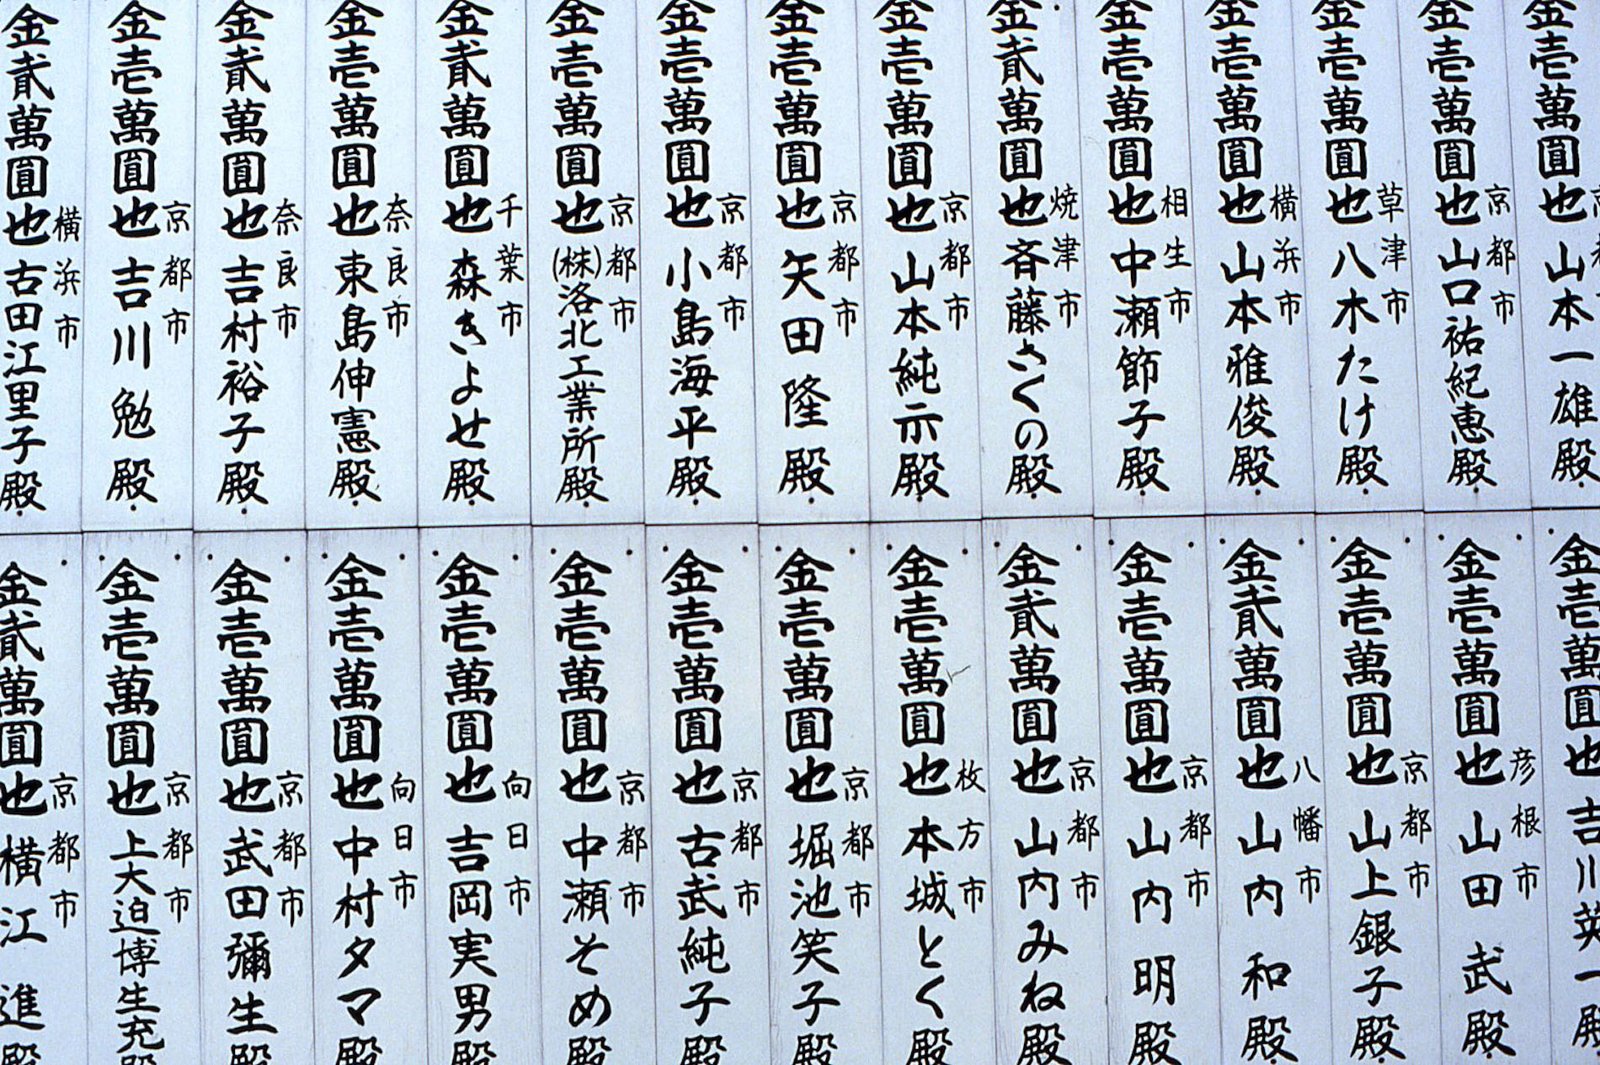 金壱萬圓也
山本一雄殿
金壱萬圓也
京都市
山口祐紀恵殿
金壱萬圓也
草津市
八木たけ殿
金壱萬圓也
横浜市
山本雅俊殿
金壱萬圓也
相生市
中瀬節子殿
金貮萬圓也
焼津市
斉藤さくの殿
金壱萬圓也
京都市
山本純示殿
金壱萬圓也
京都市
矢田隆殿
金壱萬圓也
京都市
小島海平殿
金壱萬圓也
京都市
(株)洛北工業所殿
金貮萬圓也
千葉市
森きよせ殿
金壱萬圓也
奈良市
東島伸憲殿
金貮萬圓也
奈良市
吉村裕子殿
金壱萬圓也
京都市
吉川勉殿
金貮萬圓也
横浜市
古田江里子殿
金壱萬圓也
吉川英一殿
金壱萬圓也
彦根市
山田武殿
金壱萬圓也
京都市
山上銀子殿
金貮萬圓也
八幡市
山内和殿
金壱萬圓也
京都市
山内明殿
金貮萬圓也
京都市
山内みね殿
金壱萬圓也
枚方市
本城とく殿
金壱萬圓也
京都市
堀池笑子殿
金壱萬圓也
京都市
古武純子殿
金壱萬圓也
京都市
中瀬そめ殿
金壱萬圓也
向日市
吉岡実男殿
金壱萬圓也
向日市
中村タマ殿
金壱萬圓也
京都市
武田彌生殿
金壱萬圓也
京都市
上大迫博生充殿
金貮萬圓也
京都市
横江進殿